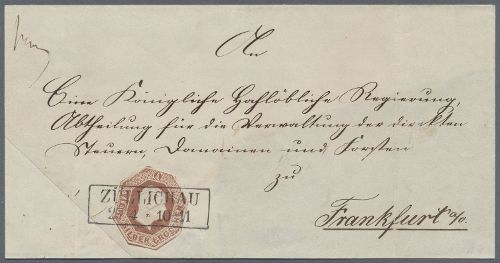 An
Eine Königliche Hochlöbliche Regierung,
Abtheilung für die Verwaltung der direkten
Steuern, Domainen und Forsten
zu
Frankfurt a/o.
ZÜLLICHAU
4 10
SILBER GROSCHEN